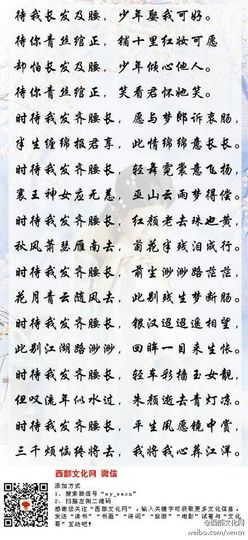 待我长发及腰，少年娶我可好。
待你青丝绾正，铺十里红妆可愿
却怕长发及腰，少年倾心他人。
待你青丝绾正，笑看君怀她笑。
时待我发齐腰长，愿与梦郎诉衷肠，
半生缠绵报君享，此情绵绵意长长。
时待我发齐腰长，轻舞霓裳意飞扬，
襄王神女应无恙，巫山云雨梦得偿。
时待我发齐腰长，红颜老去珠也黄，
秋风萧瑟雁南去，菊花半残泪成行。
时待我发齐腰长，前生渺渺路茫茫，
花月青云随风去，此别残生梦断肠。
时待我发齐腰长，银汉迢迢遥相望，
此别江湖路渺渺，回眸一目来生怅。
时待我发齐腰长，轻车彩幡玉女靓，
但叹流年似水过，朱颜逝去青灯凉。
时待我发齐腰长，平生凤愿镜中赏，
三千烦恼终将去，我将我心葬江洋。
西部文化网 微信
添加方式
1、搜索微信号"my_wncn"
2、扫描左侧二维码
感谢您关注"西部文化网"，输入关键字可获取更多文化信息，
发送"读书""书画""诗词""旅游""电影"试着与"文化
哥"互动吧！
@西部文化网
weibo.com/wncn